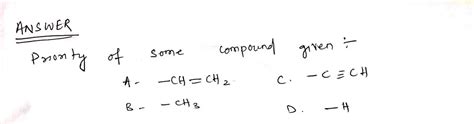 ANSWER
Priority of some compound given :-
A- -CH=CH2 C. -C≡CH
B- -CH3 D. -H